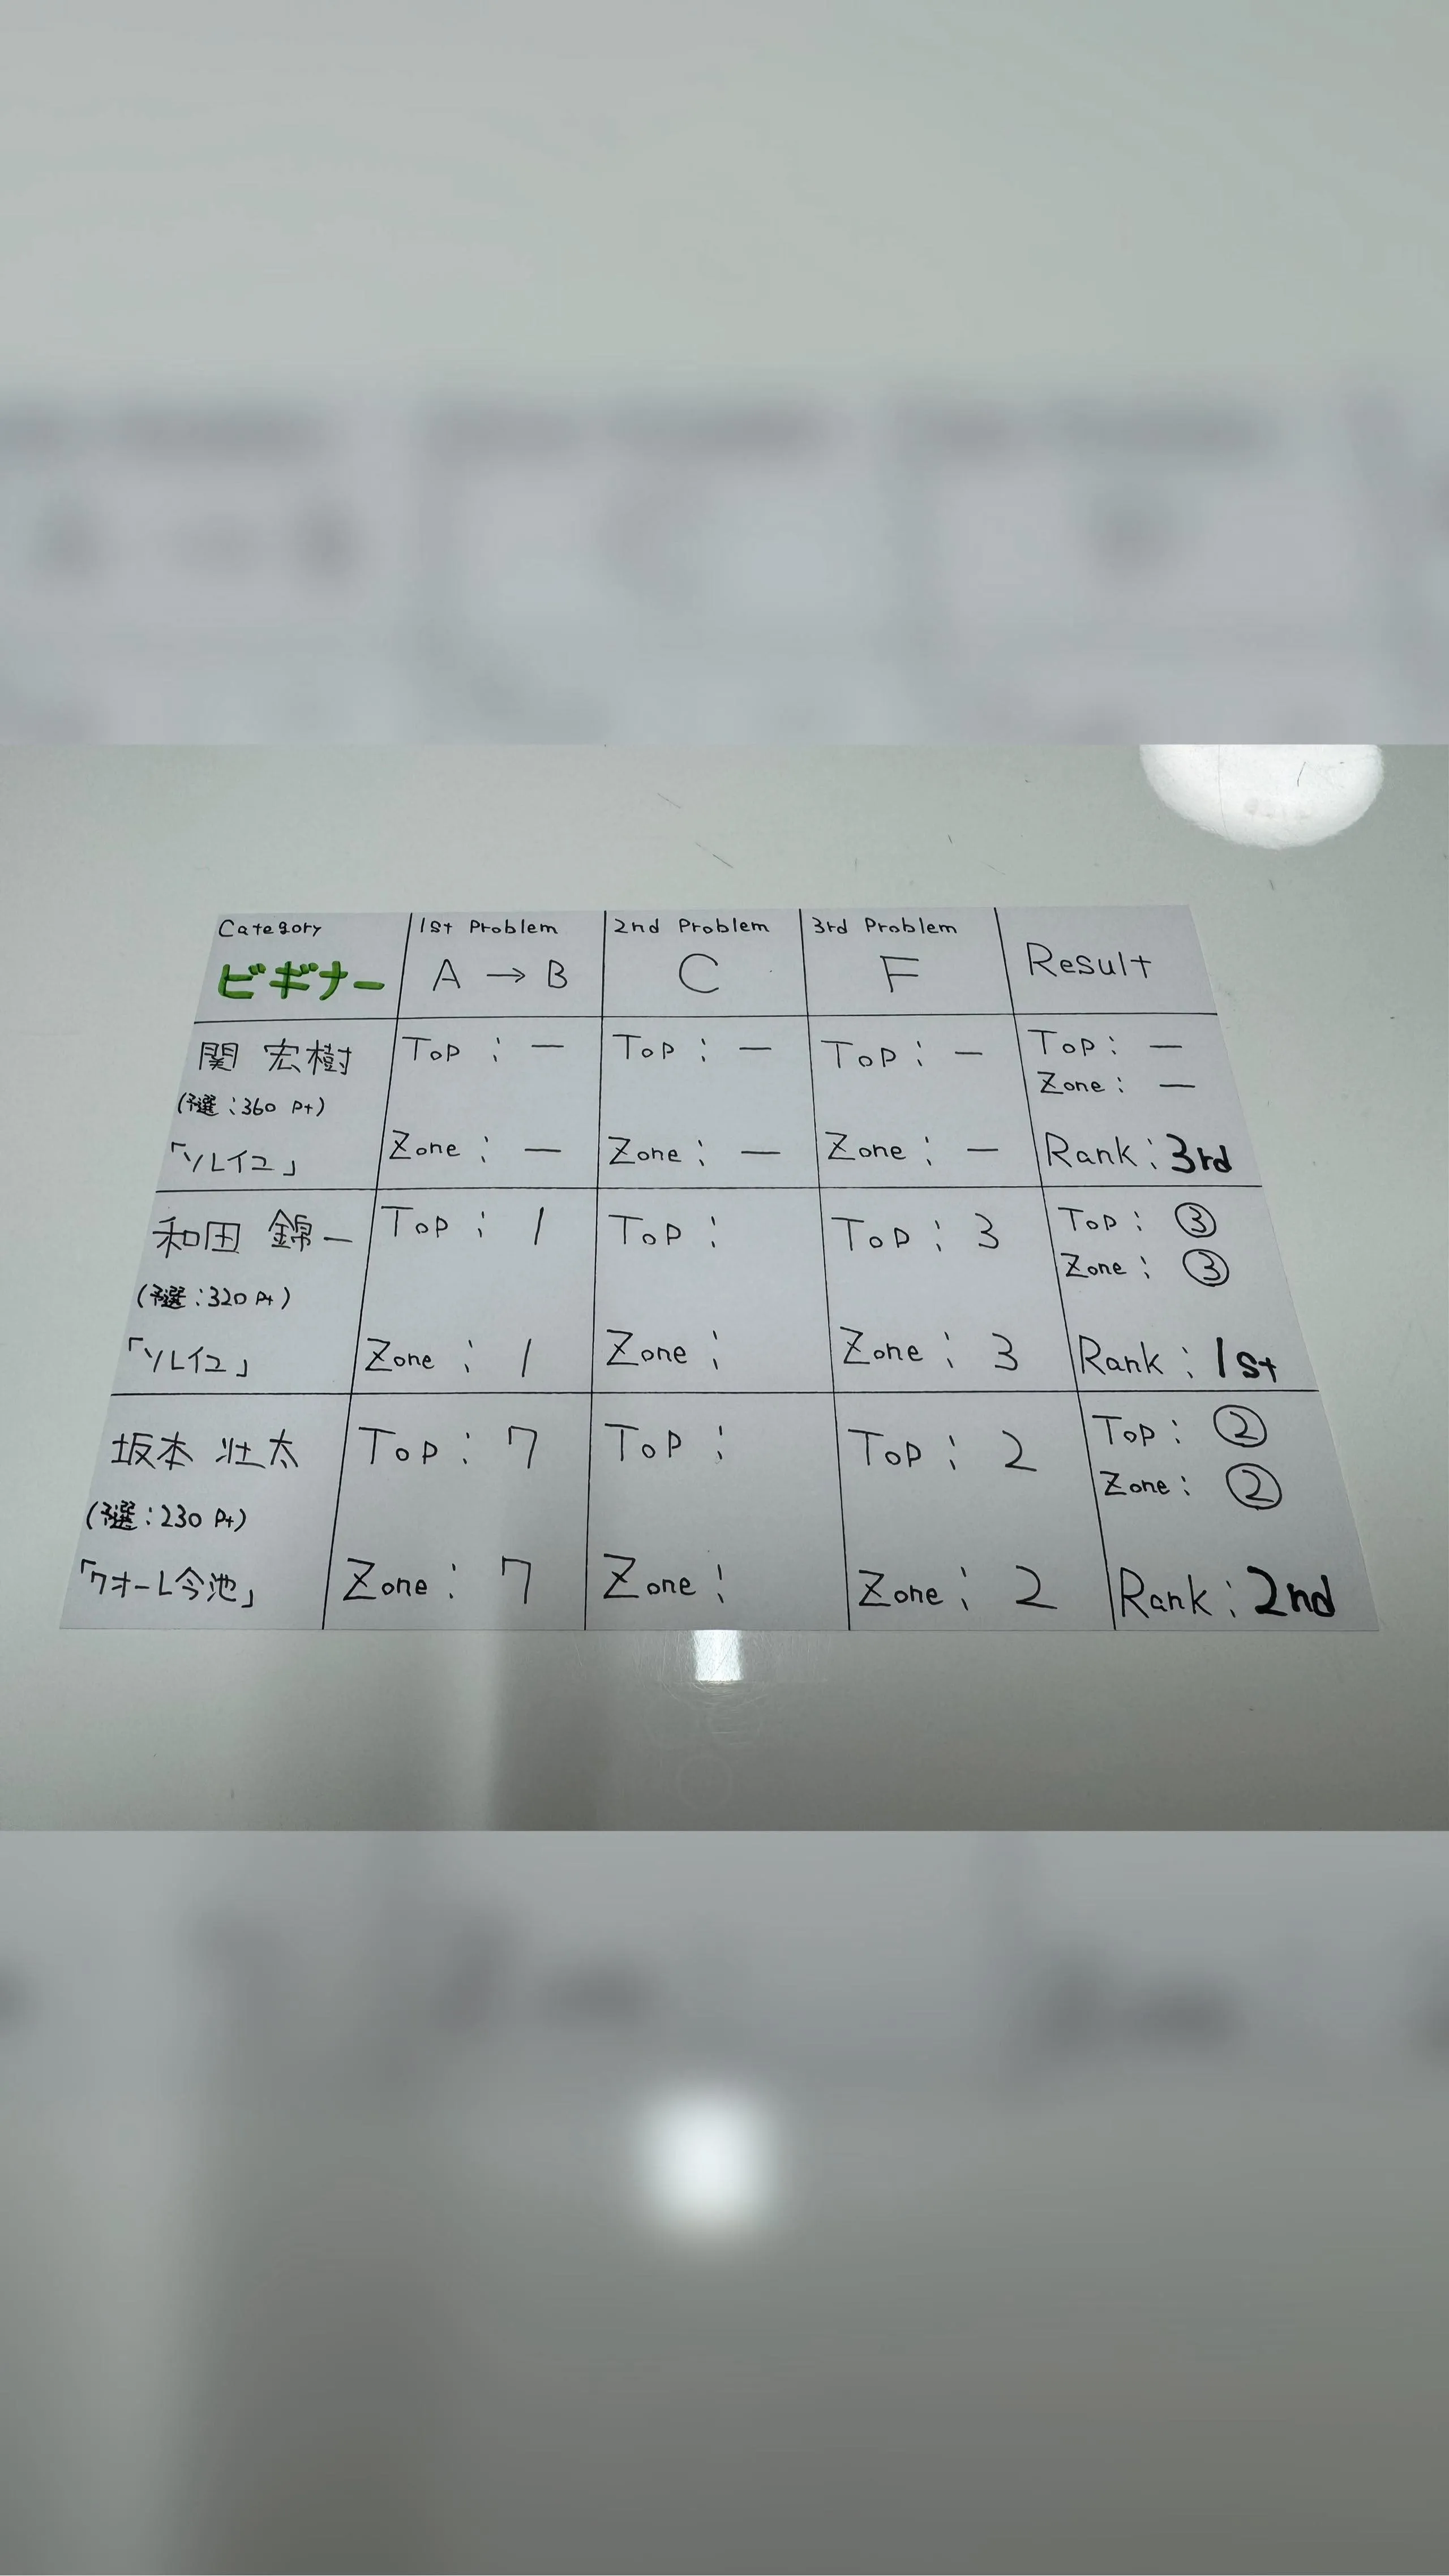 Category
ビギナー
1st Problem
A → B
2nd Problem
C
3rd Problem
F
Result
関 宏樹
(予選:360 Pt)
「ソレイユ」
Top : —
Zone : —
Top : —
Zone : —
Top : —
Zone : —
Top : —
Zone : —
Rank : 3rd
和田 錦一
(予選:320 Pt)
「ソレイユ」
Top : 1
Zone : 1
Top :
Zone :
Top : 3
Zone : 3
Top : ③
Zone : ③
Rank : 1st
坂本 壮太
(予選:230 Pt)
「クオーレ今池」
Top : 7
Zone : 7
Top :
Zone :
Top : 2
Zone : 2
Top : ②
Zone : ②
Rank : 2nd